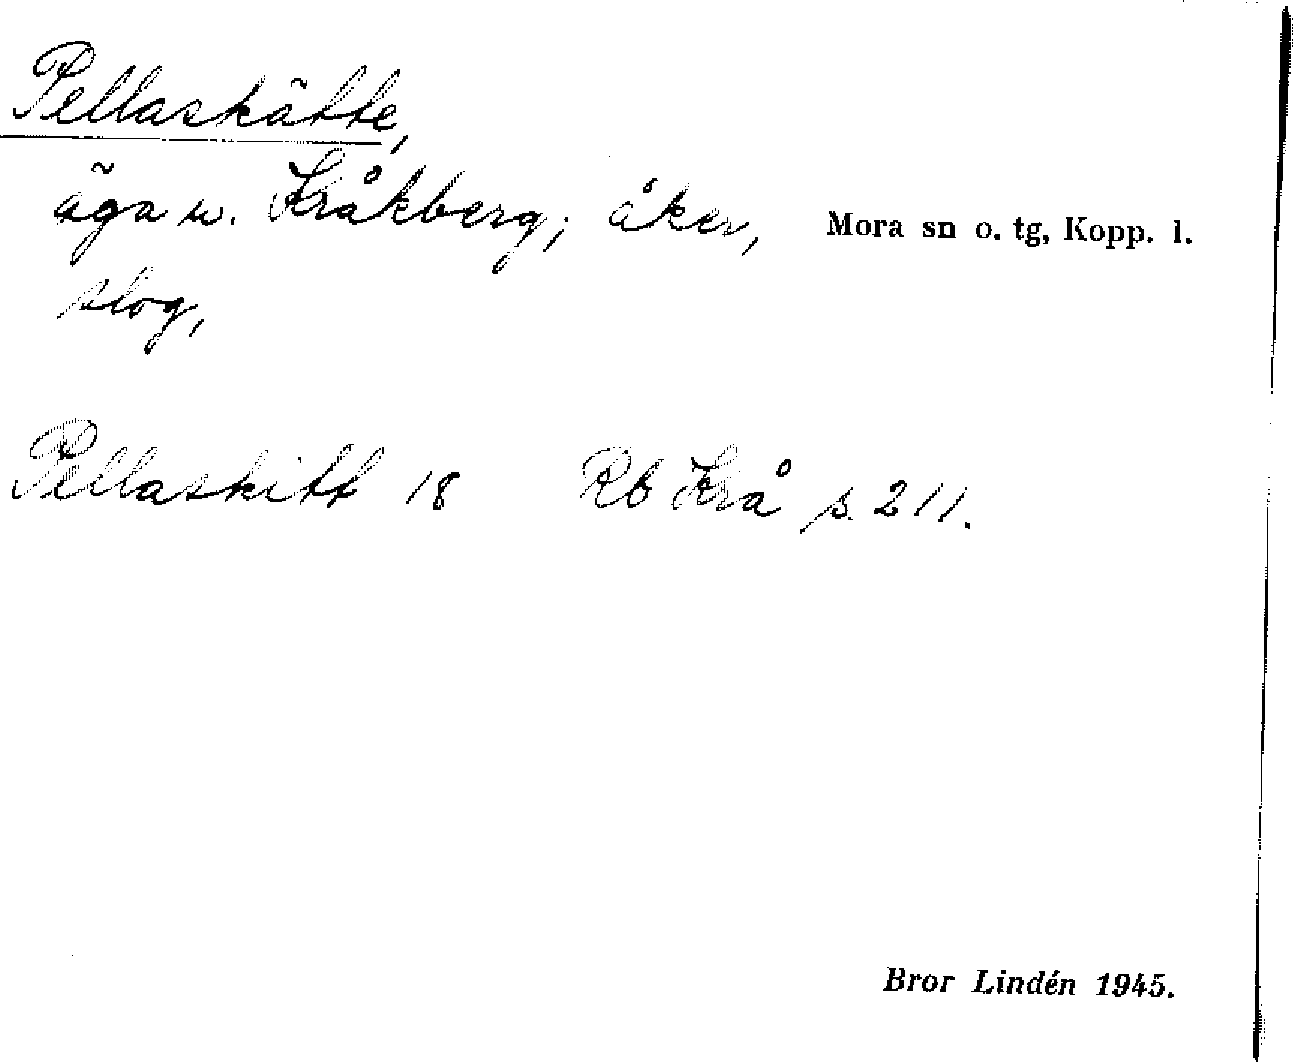 Pellaskätte,
äga w. Kråkberg; åker, Mora sn o. tg, Kopp. l.
slog,
Pellaskitt 18 Rb Krå s. 211.
Bror Lindén 1945.